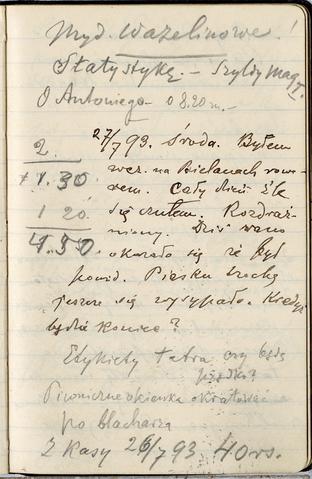 Myd. Wazelinowe!
Statystykę. – Szyldy mag.
O Antoniego – o 8.20 m. –
27/7 93. Środa. Byłem
2.
wcz. na Bielanach rowe-
+ 1.30.
rem. Cały dzień źle
1 20.
się czułem. Rozdraż-
4.50.
niony. Dziś rano
okazało się że był
powód. Piasku trochę
jeszcze się wysypało. Kiedyż
będzie koniec?
Etykiety Tatra czy będą
prędko?
Piwniczne okienka okratować
po blacharza
Z Kasy 26/7 93 40 rs.